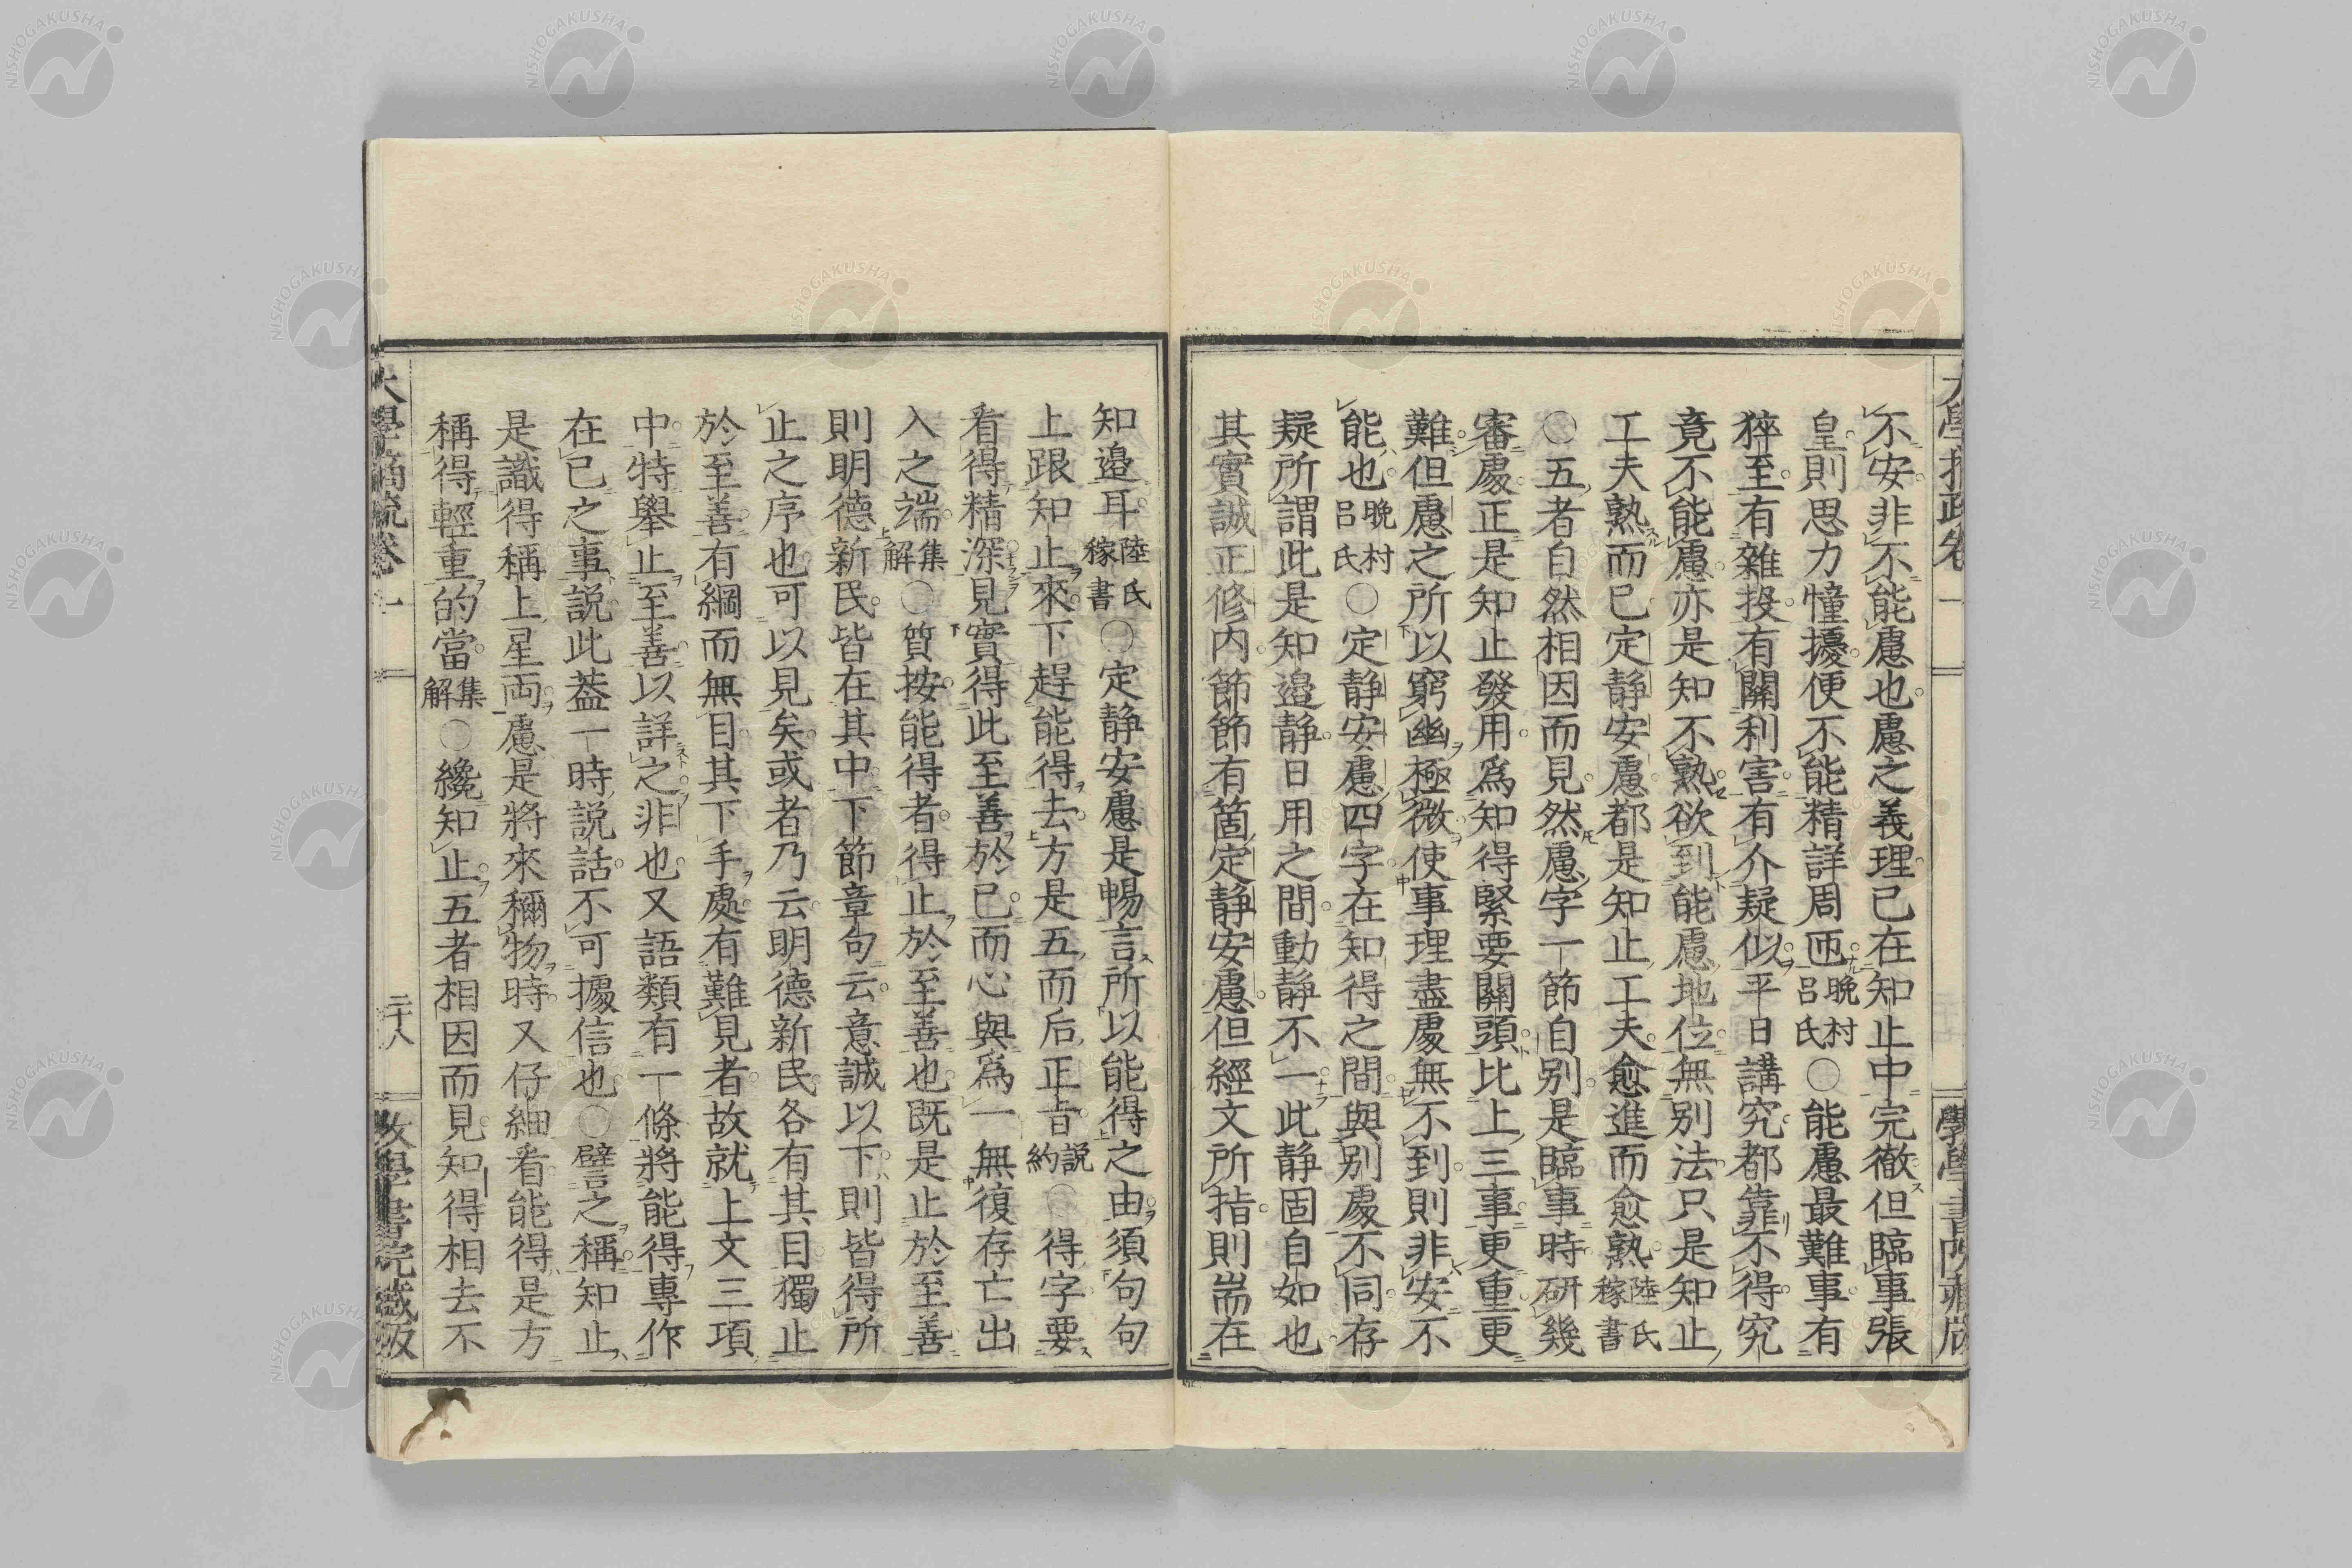 不安非不能慮也慮之義理已在知止中完徹但臨事張
皇則思力憧擾便不能精詳周匝晩村呂氏〇能慮最難事有
猝至有雜投有關利害有介疑似平日講究都靠不得究
竟不能慮亦是知不熟欲到能慮地位無別法只是知止
工夫熟而已定静安慮都是知止工夫愈進而愈熟陸氏稼書
〇五者自然相因而見然慮字一節自別是臨事時研幾
審處正是知止發用爲知得緊要關頭比上三事更重更
難但慮之所以窮幽極微使事理盡處無不到則非安不
能也晩村呂氏〇定静安慮四字在知得之間與別處不同存
疑所謂此是知邉静日用之間動静不一此静固自如也
其實誠正修内節節有箇定静安慮但經文所指則耑在
知邉耳陸氏稼書〇定静安慮是暢言所以能得之由須句句
上跟知止來下趕能得去方是五而后正旨説約〇得字要
看得精深見實得此至善於已而心與爲一無復存亡出
入之端集解〇質按能得者得止於至善也既是止於至善
則明德新民皆在其中下節章句云意誠以下則皆得所
止之序也可以見矣或者乃云明德新民各有其目獨止
於至善有綱而無目其下手處有難見者故就上文三項
中特舉止至善以詳之非也又語類有一條將能得專作
在已之事説此葢一時説話不可據信也〇譬之稱知止
是識得稱上星両慮是將來稱物時又仔細看能得是方
稱得輕重的當集解〇纔知止五者相因而見知得相去不
大學摘疏卷一
二十八
學書院藏版
NISHOGAKUSHA